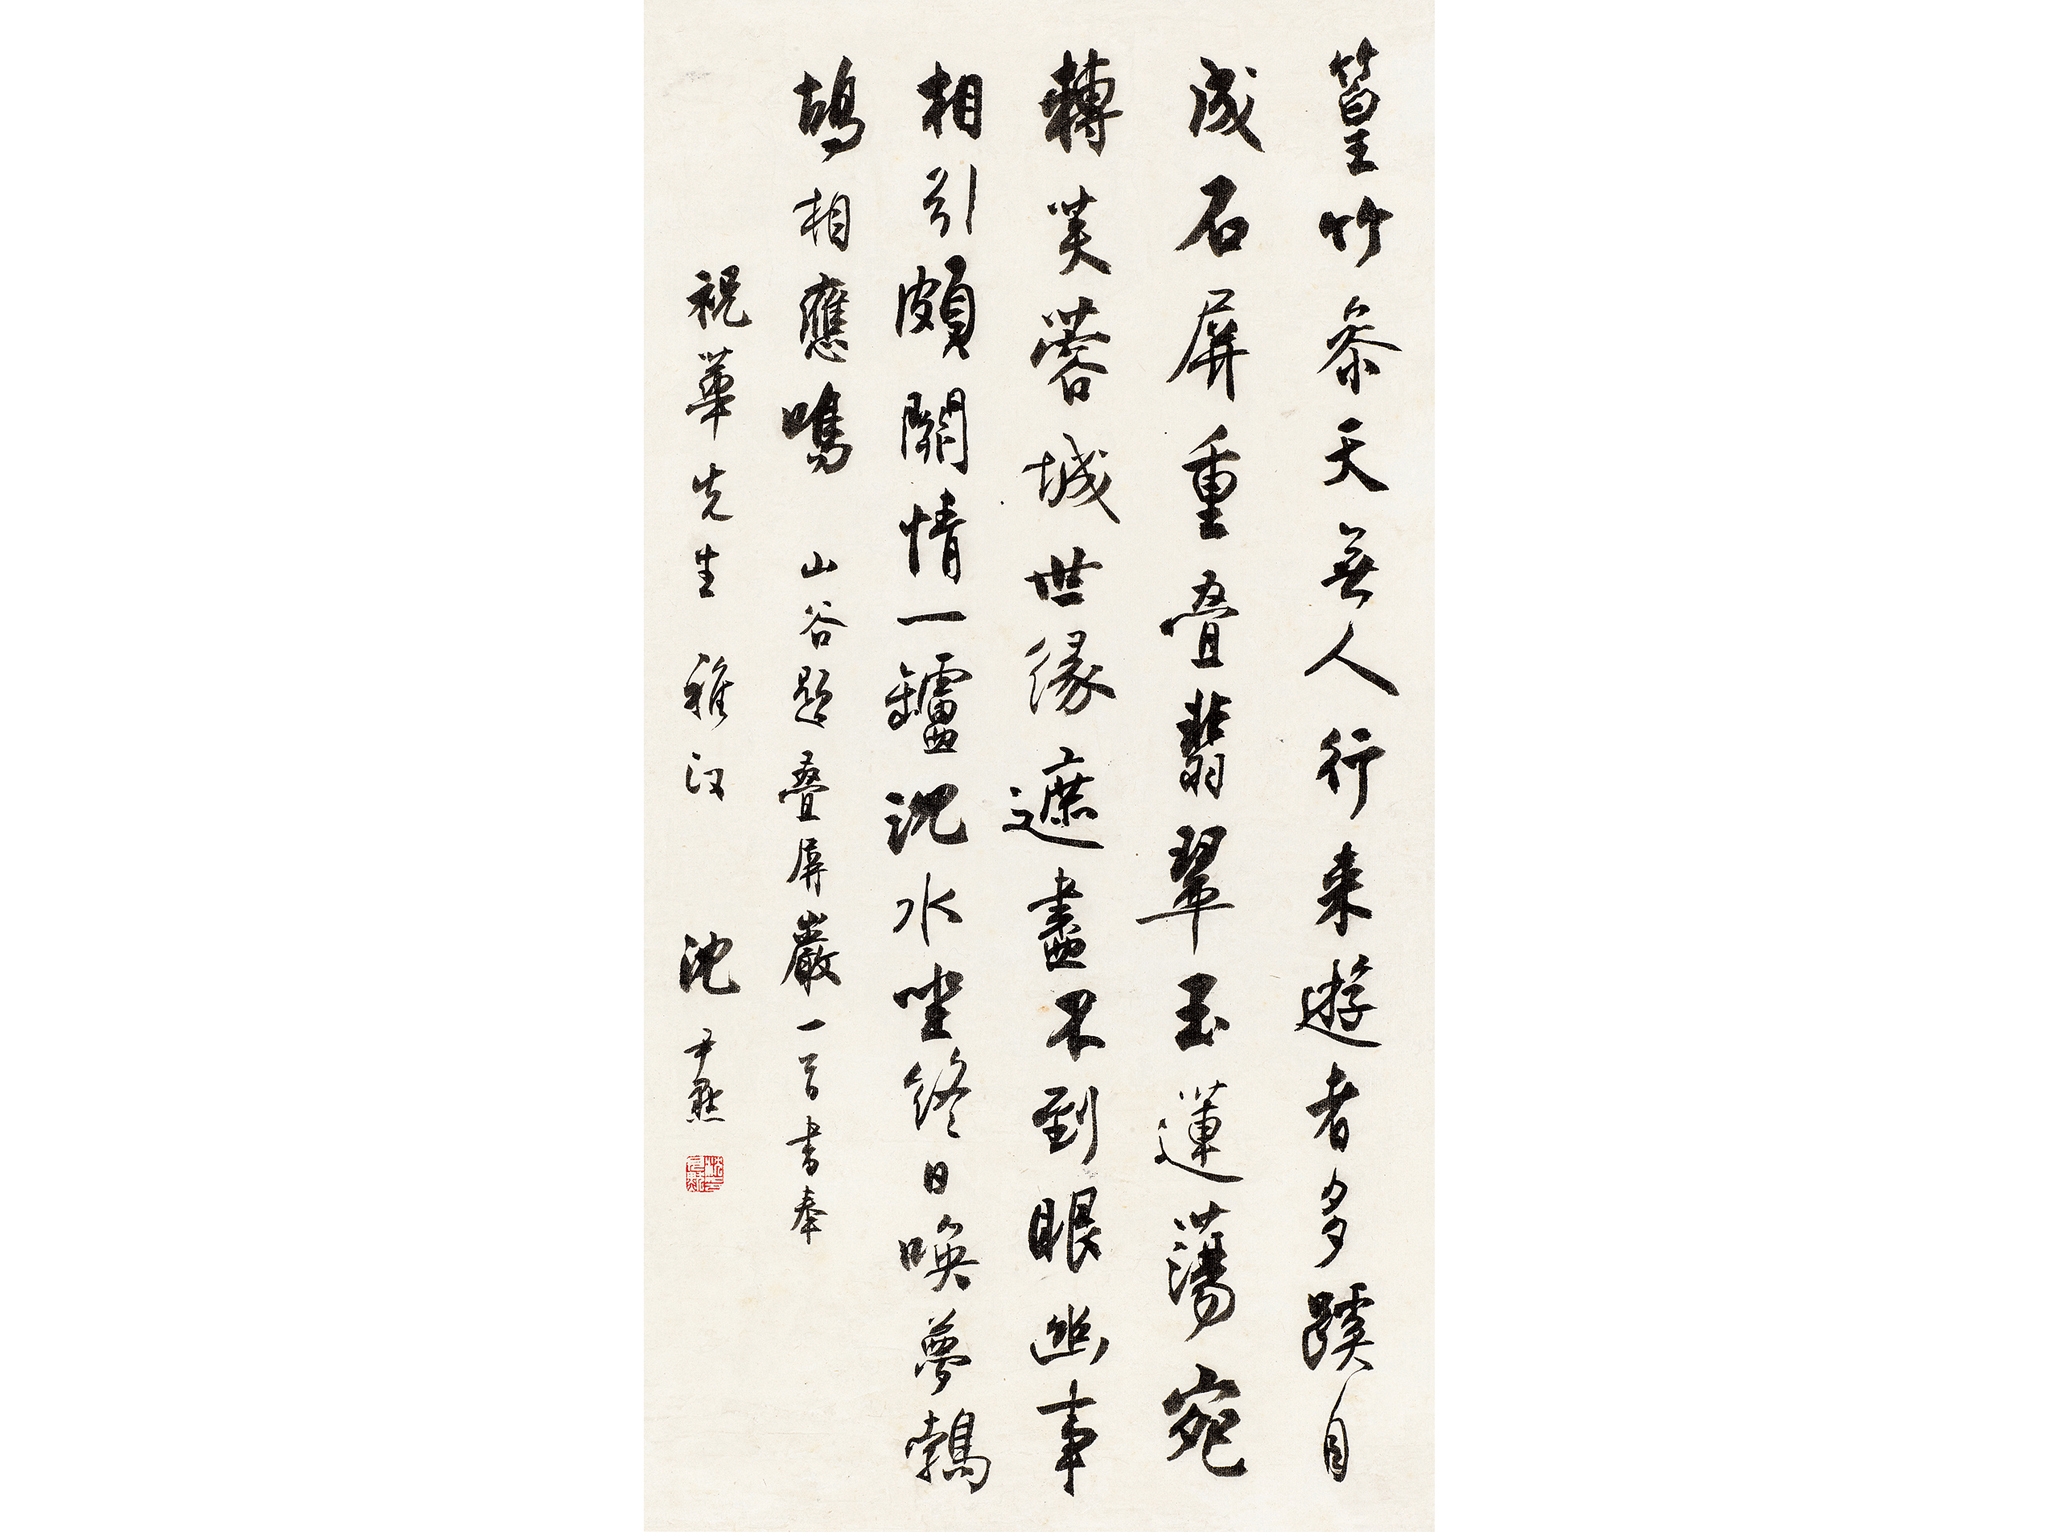 篁竹參天無人行来遊者多蹊自
成石屏重叠翡翠玉蓮蕩宛
轉芙蓉城世緣遮盡不到眼幽事
相引頗關情一鑪沈水坐終日喚夢鵓
鴣相應鳴 山谷題叠屏巖一首書奉
祝華先生 雅政 沈尹默